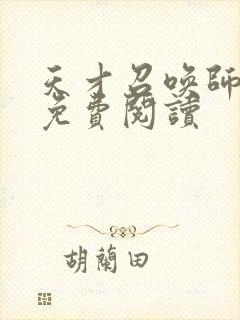 天才召喚師
免費閱讀
胡蘭田